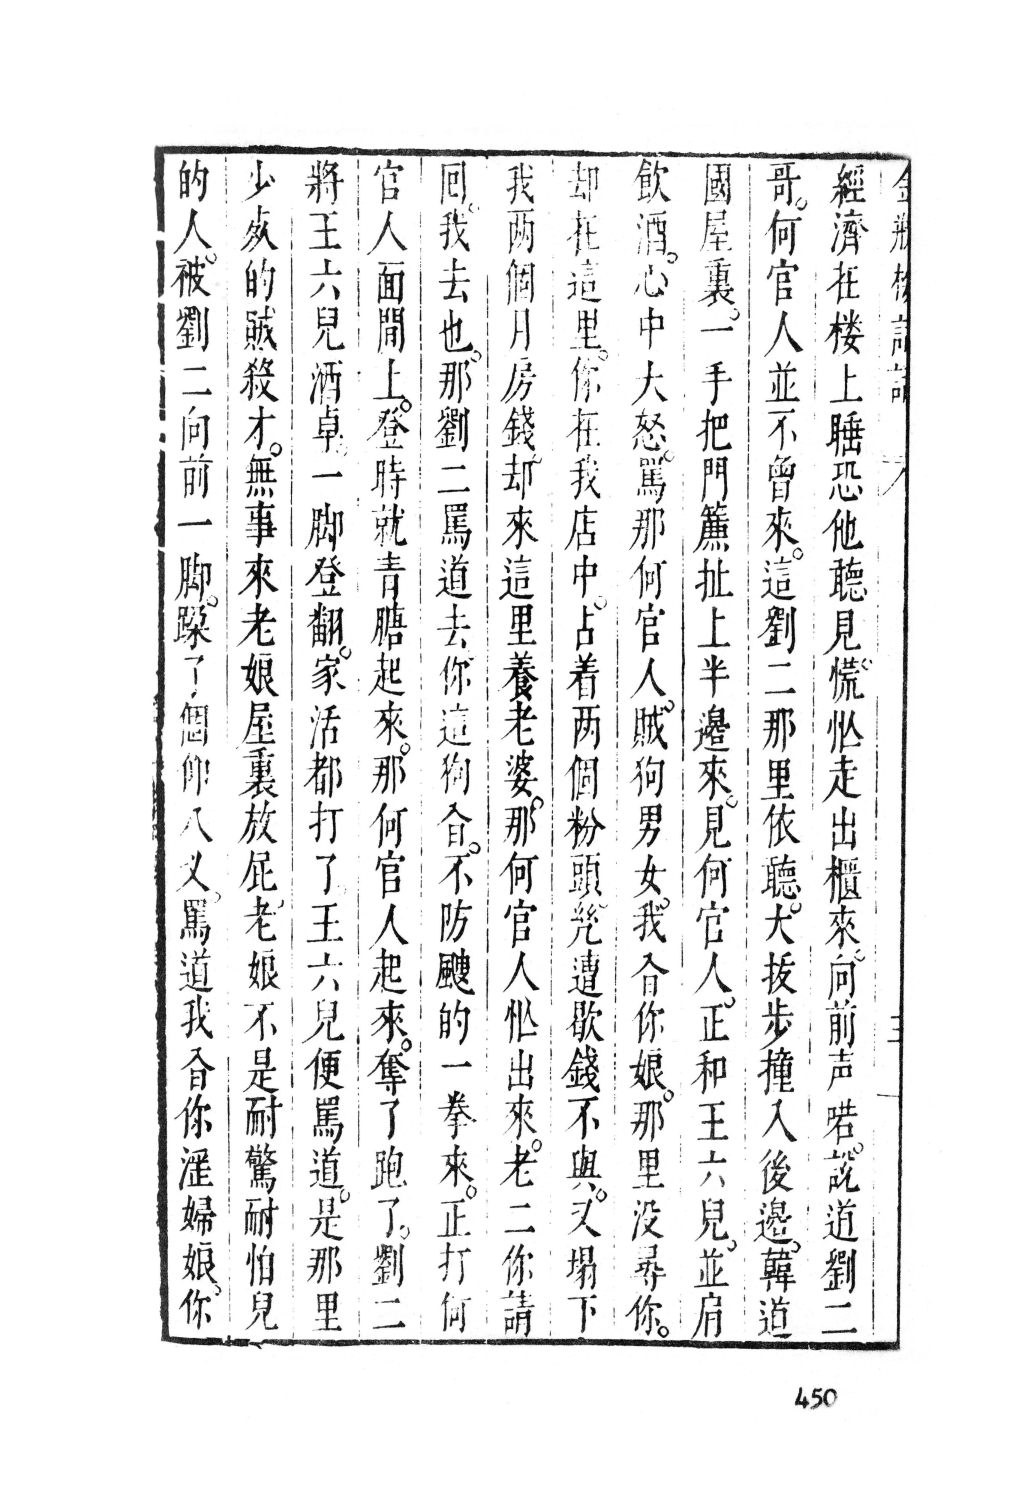 經濟在楼上睡恐他聽見慌忙走出櫃來向前声喏説道劉二
哥何官人並不曾來這劉二那里依聽大拔步撞入後邊韓道
國屋裏一手把門簾扯上半邊來見何官人正和王六兒並肩
飲酒心中大怒罵那何官人賊狗男女我㒲你娘那里没尋你
却在這里你在我店中占着两個粉頭幾遭歇錢不與又塌下
我两個月房錢却來這里養老婆那何官人忙出來老二你請
回我去也那劉二罵道去你這狗㒲不防颼的一拳來正打何
官人面間上登時就青腫起來那何官人起來奪了跑了劉二
將王六兒酒卓一脚登翻家活都打了王六兒便罵道是那里
少死的賊殺才無事來老娘屋裏放屁老娘不是耐驚耐怕兒
的人被劉二向前一脚跺了個仰八叉罵道我㒲你淫婦娘你
450